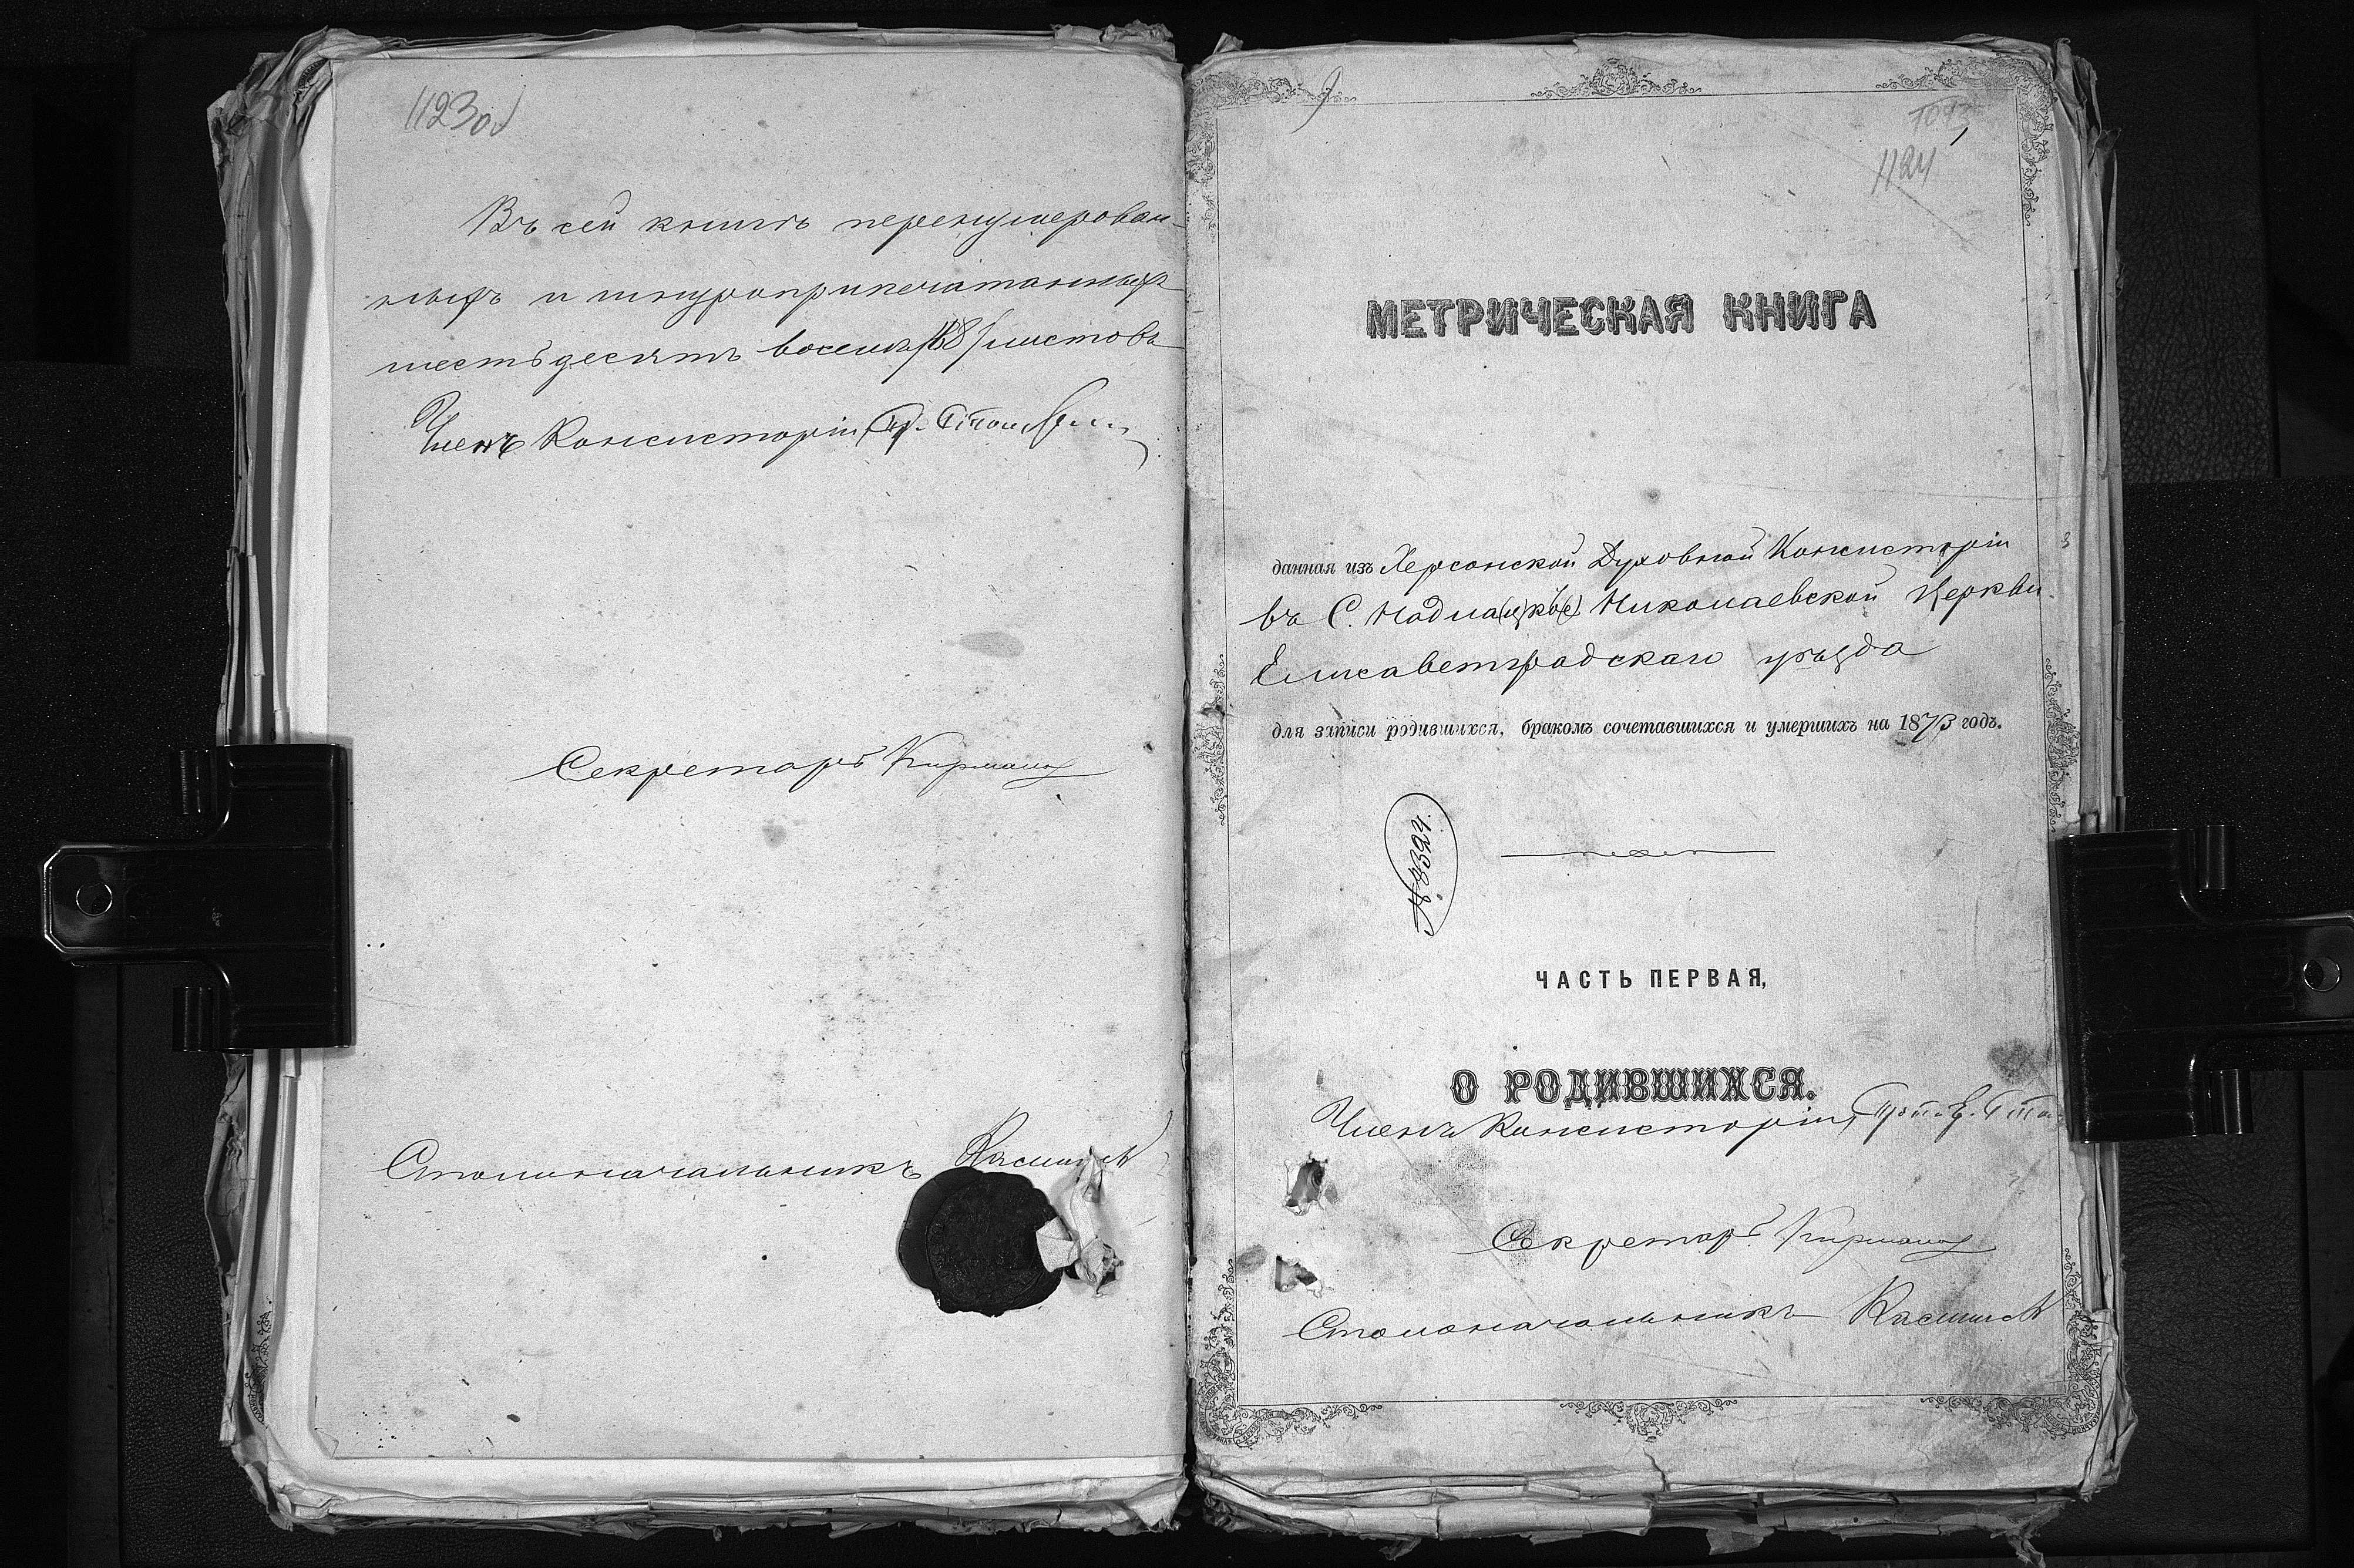 1123 об
Въ сей книгѣ перенумерован-
ныхъ и шнуроприпечатанныхъ
шестьдесятъ восемь /68/ листовъ
Членъ Консисторіи, Пр.
Секретарь
Столоначальникъ
1124
МЕТРИЧЕСКАЯ КНИГА
данная изъ Херсонской Духовной Консисторіи
въ С. Надла(ц)кѣ Николаевской Церкви
Елисаветградскаго уѣзда
для записи родившихся, бракомъ сочетавшихся и умершихъ на 1873 годъ.
№ 8324.
ЧАСТЬ ПЕРВАЯ,
О РОДИВШИХСЯ.
Членъ Консисторіи,
Секретарь
Столоначальникъ